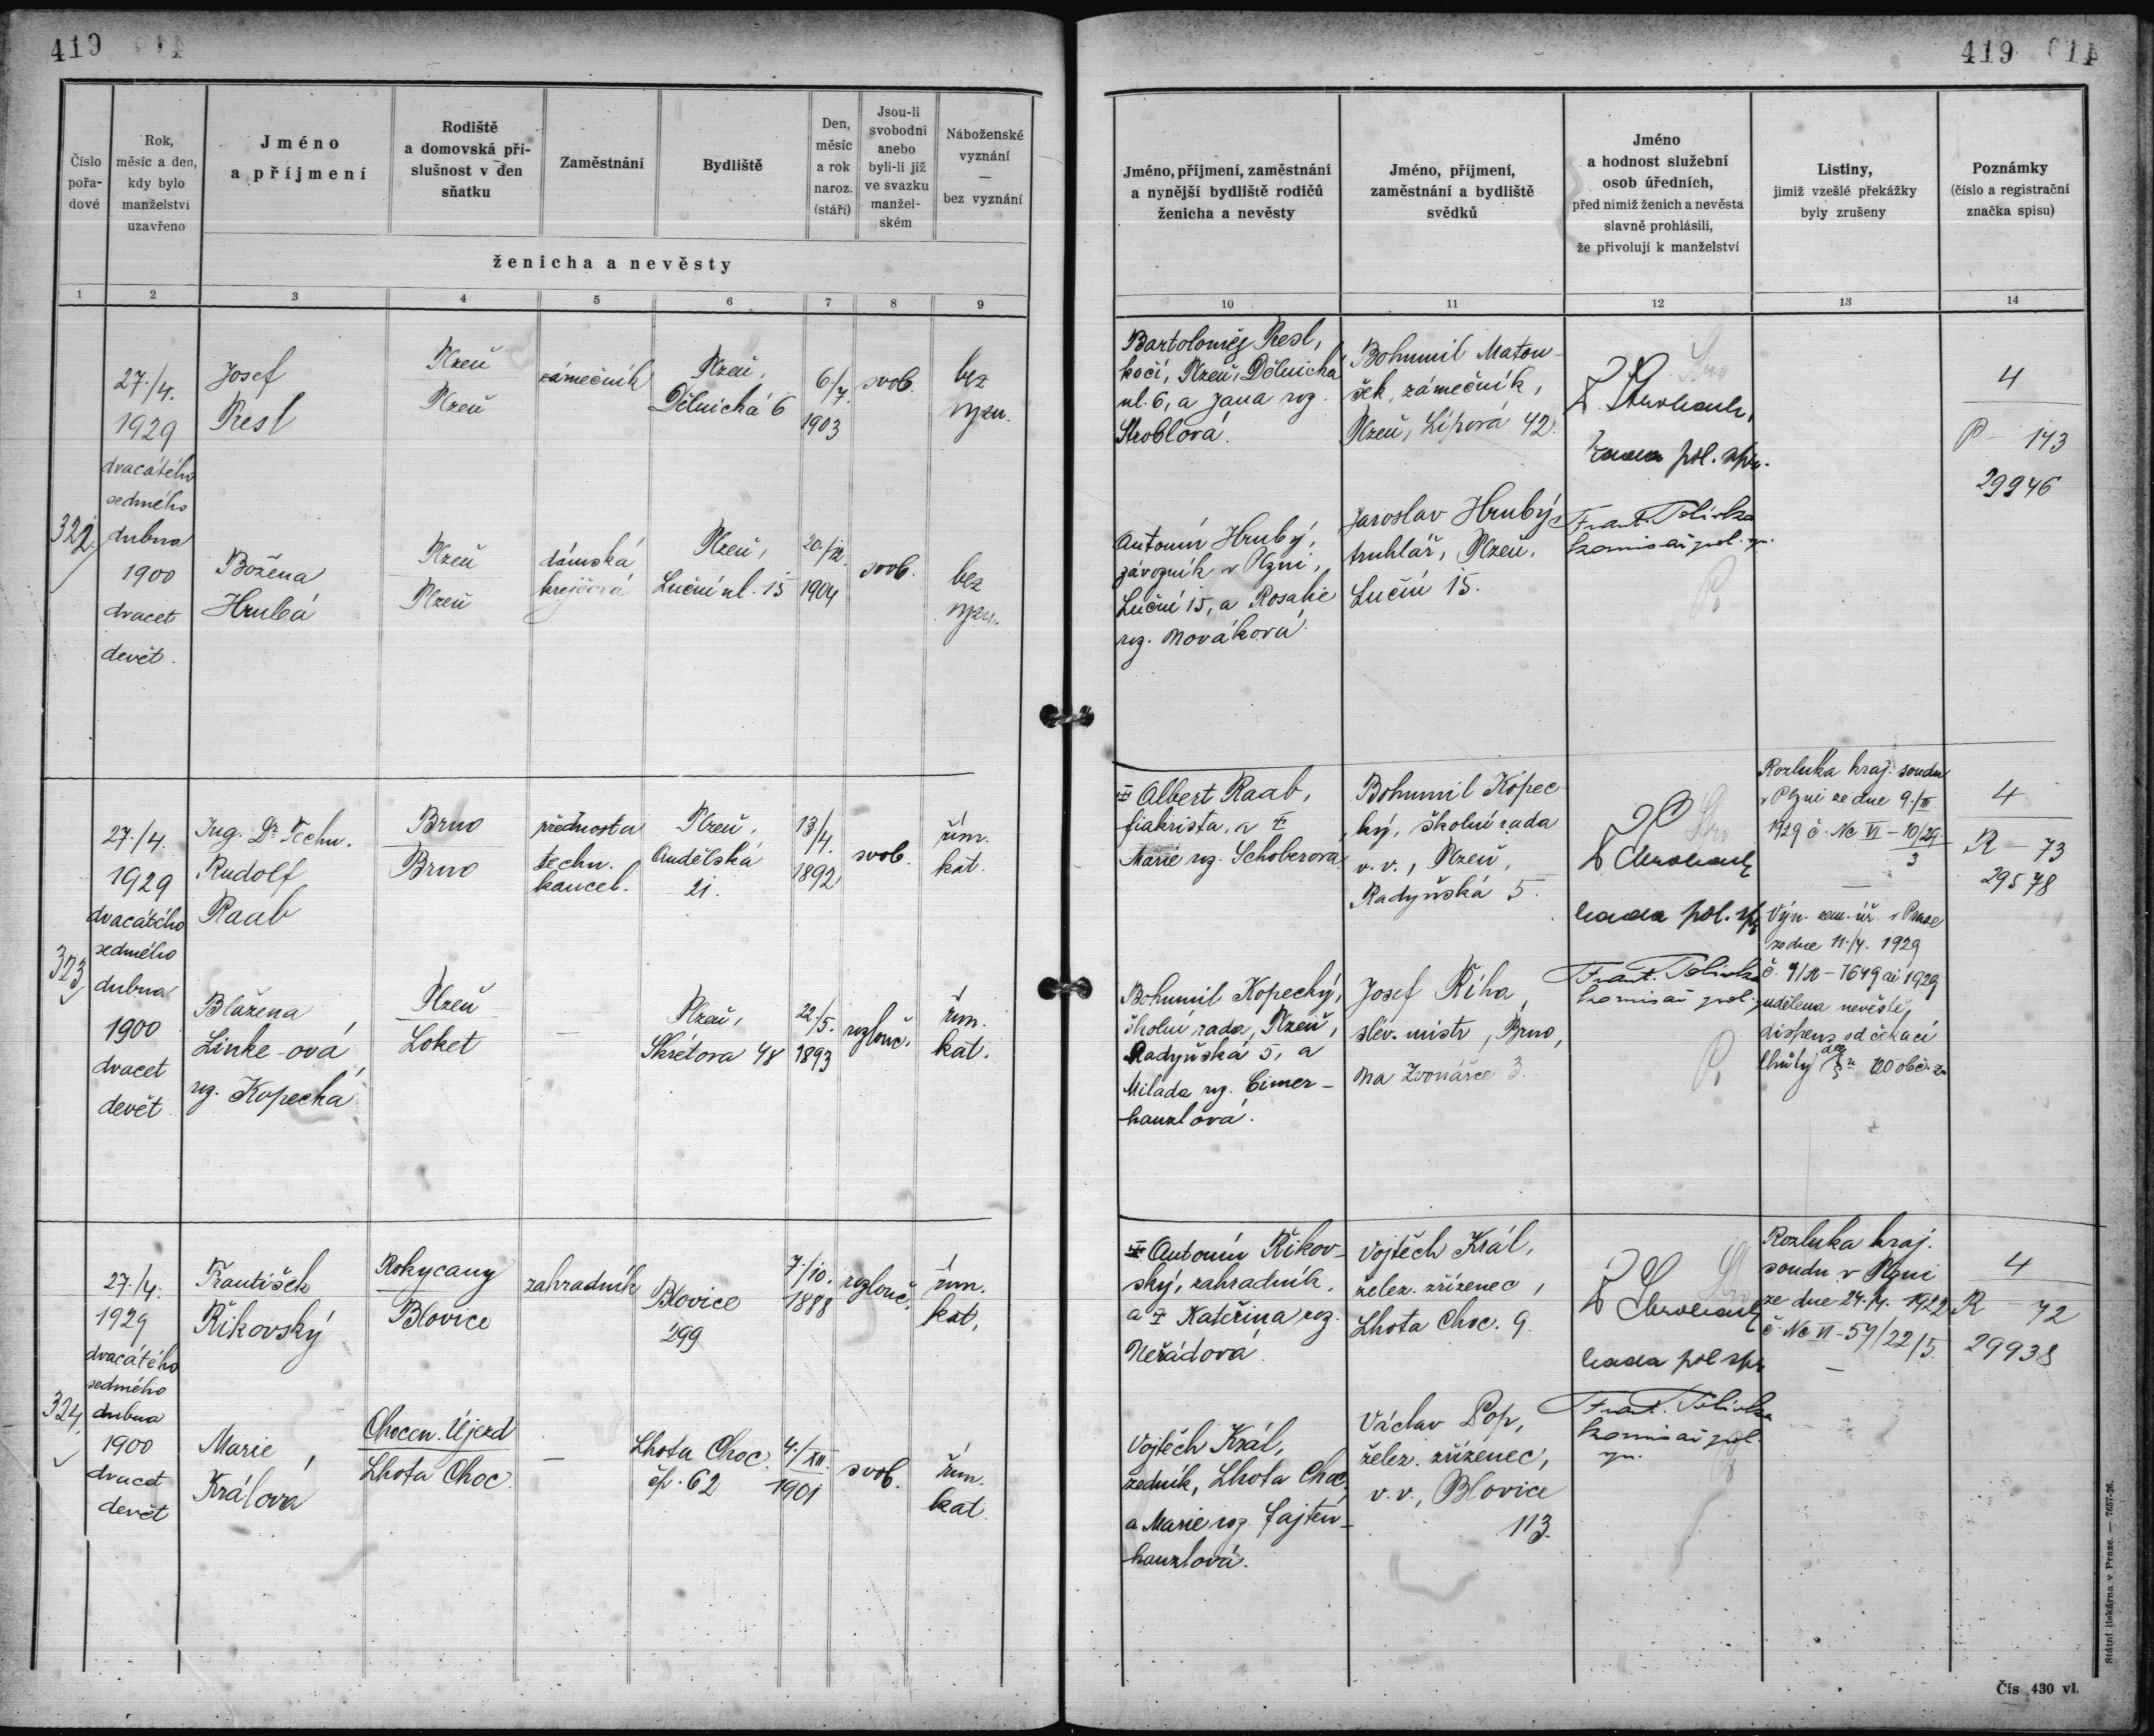 419
419
Číslo
pořa-
dové
Rok,
měsíc a den,
kdy bylo
manželství
uzavřeno
Jméno
a příjmení
Rodiště
a domovská pří-
slušnost v den
sňatku
Zaměstnání
Bydliště
Den,
měsíc
a rok
naroz.
(stáří)
Jsou-li
svobodni
anebo
byli-li již
ve svazku
manžel-
ském
Náboženské
vyznání
—
bez vyznání
ženicha a nevěsty
Jméno, příjmení, zaměstnání
a nynější bydliště rodičů
ženicha a nevěsty
Jméno, příjmení,
zaměstnání a bydliště
svědků
Jméno
a hodnost služební
osob úředních,
před nimiž ženich a nevěsta
slavně prohlásili,
že přivolují k manželství
Listiny,
jimiž vzešlé překážky
byly zrušeny
Poznámky
(číslo a registrační
značka spisu)
1 2 3 4 5 6 7 8 9
10 11 12 13 14
322
27./4.
1929
dvacátého
sedmého
dubna
1900
dvacet
devět.
Josef
Resl
Plzeň
Plzeň
zámečník
Plzeň,
Dělnická 6
6./7.
1903
svob.
bez
vyzn.
Božena
Hrubá
Plzeň
Plzeň
dámská
krejčová
Plzeň,
Luční ul. 15
1904
svob.
bez
vyzn.
Bartoloměj Resl,
kočí, Plzeň, Dělnická
ul. 6, a Jana roz.
Stroblová.
Antonín Hrubý,
závozník v Plzni,
Luční 15, a Rosalie
roz. Nováková.
Bohumil Matou-
šek, zámečník,
Plzeň, Lípová 42.
Jaroslav Hrubý,
truhlář, Plzeň,
Luční 15.
rada pol. spr.
Frant. Polívka
komisař pol. spr.
4
P - 143
29946
323
27./4.
1929
dvacátého
sedmého
dubna
1900
dvacet
devět.
Ing. Dr. Techn.
Rudolf
Raab
Brno
Brno
přednosta
techn.
kancel.
Plzeň,
Andělská
21.
13./4.
1892
svob.
řím.
kat.
Blažena
Linke-ová,
roz. Kopecká
Plzeň
Loket
—
Plzeň,
Skrétova 48
22./5.
1893
rozlouč.
řím.
kat.
Albert Raab,
fiakrista, a
Marie roz. Schoberová
Bohumil Kopecký,
školní rada, Plzeň,
Radyňská 5, a
Milada roz. Cimer-
hanzlová.
Bohumil Kopec-
ký, školní rada
v. v., Plzeň,
Radyňská 5.
Josef Říha,
slev. mistr, Brno,
Na Zvonářce 3.
rada pol. spr.
Frant. Polívka
komisař pol.
Rozluka kraj. soudu
v Plzni ze dne 9./III.
1929 č. Nc VI - 10/29
3
—
Výn. zem. úř. v Praze
ze dne 11./4. 1929
udělena nevěstě
dispens od čekací
lhůty dle § 120 obč. z.
4
R - 73
29578
324
27./4.
1929
dvacátého
sedmého
dubna
1900
dvacet
devět
František
Řikovský
Rokycany
Blovice
zahradník
Blovice
299
7./10.
1888
rozlouč.
řím.
kat.
Marie
Králová
Chocen. Újezd
Lhota Choc.
—
Lhota Choc.
čp. 62
4./XII.
1901
svob.
řím.
kat.
Antonín Řikov-
ský, zahradník,
a Kateřina roz.
Neřádová.
Vojtěch Král,
zedník, Lhota Choc.
a Marie roz. Fajten-
hanzlová.
Vojtěch Král,
želez. zřízenec,
Lhota Choc. 9.
Václav Pop,
želez. zřízenec,
v. v., Blovice
113.
rada pol. spr.
Frant. Polívka
komisař pol.
Rozluka kraj.
soudu v Plzni
ze dne 24./4. 1922
č. Nc VI - 57/22/5.
—
4
R - 72
29938
Státní tiskárna v Praze. — 7657-26.
Čís. 430 vl.